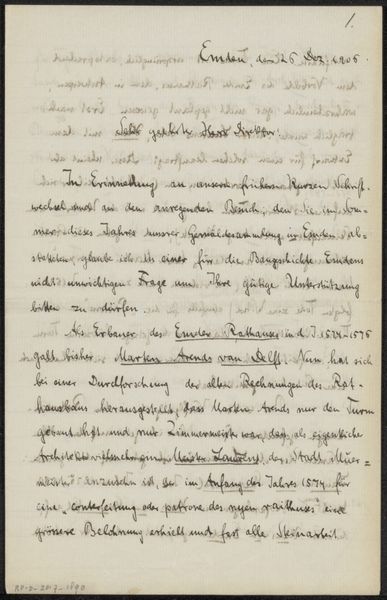 1.
Emden, den 26 Dez. 1906.
Sehr geehrter Herr Direktor!
In Erinnerung an unsern frühern kurzen Schrift-
wechsel und an den anregenden Besuch, den Sie im Som-
mer dieses Jahres unsrer Gemäldesammlung in Emden ab-
statteten, glaube ich in einer für die Baugeschichte Emdens
nicht unwichtigen Frage um Ihre gütige Unterstützung
bitten zu dürfen.
Als Erbauer des Emder Rathauses in d. J. 1574–1576
galt bisher Marten Arends van Delft. Nun hat sich
bei einer Durchforschung der alten Rechnungen des Rat-
hausbaus herausgestellt, dass Marten Arends nur den Turm
gebaut hat und nur Zimmermeister war, dass als eigentlicher
Architekt vielmehr ein Meister Laurens, der Stadt "Muer-
" anzusehn ist, der im Anfang des Jahres 1574 für
eine "conterfeitung oder patrone des nyen raithuses" eine
grössere Belohnung erhielt und fast alle Steinarbeit
RP-D-2017-1890